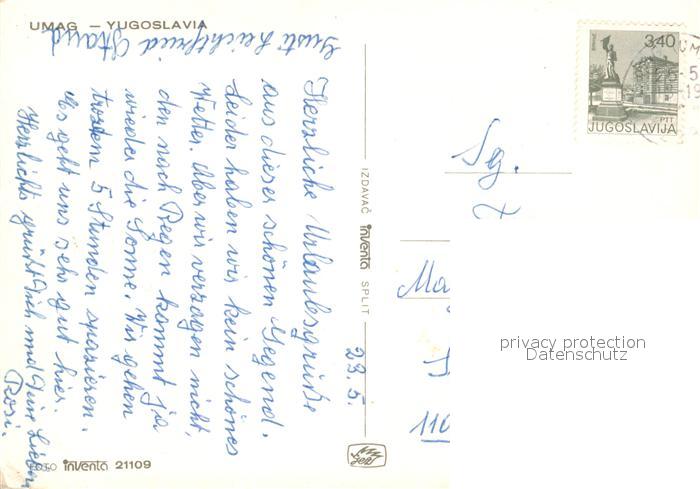 UMAG — YUGOSLAVIA
Gusti Leichtfried Strand
Herzliche Urlaubsgrüße
aus dieser schönen Gegend.
Leider haben wir kein schönes
Wetter. Aber wir verzagen nicht,
den nach Regen kommt ja
wieder die Sonne. Wir gehen
trozdem 5 Stunden spazieren.
Es geht uns sehr gut hier.
Herzlichst grüßt Dich und Deine Lieben
Rosi.
FOTO inventa 21109
IZDAVAČ inventa SPLIT
23.5.
3,40
PTT
JUGOSLAVIJA
Sg.
Ma
110
privacy protection
Datenschutz